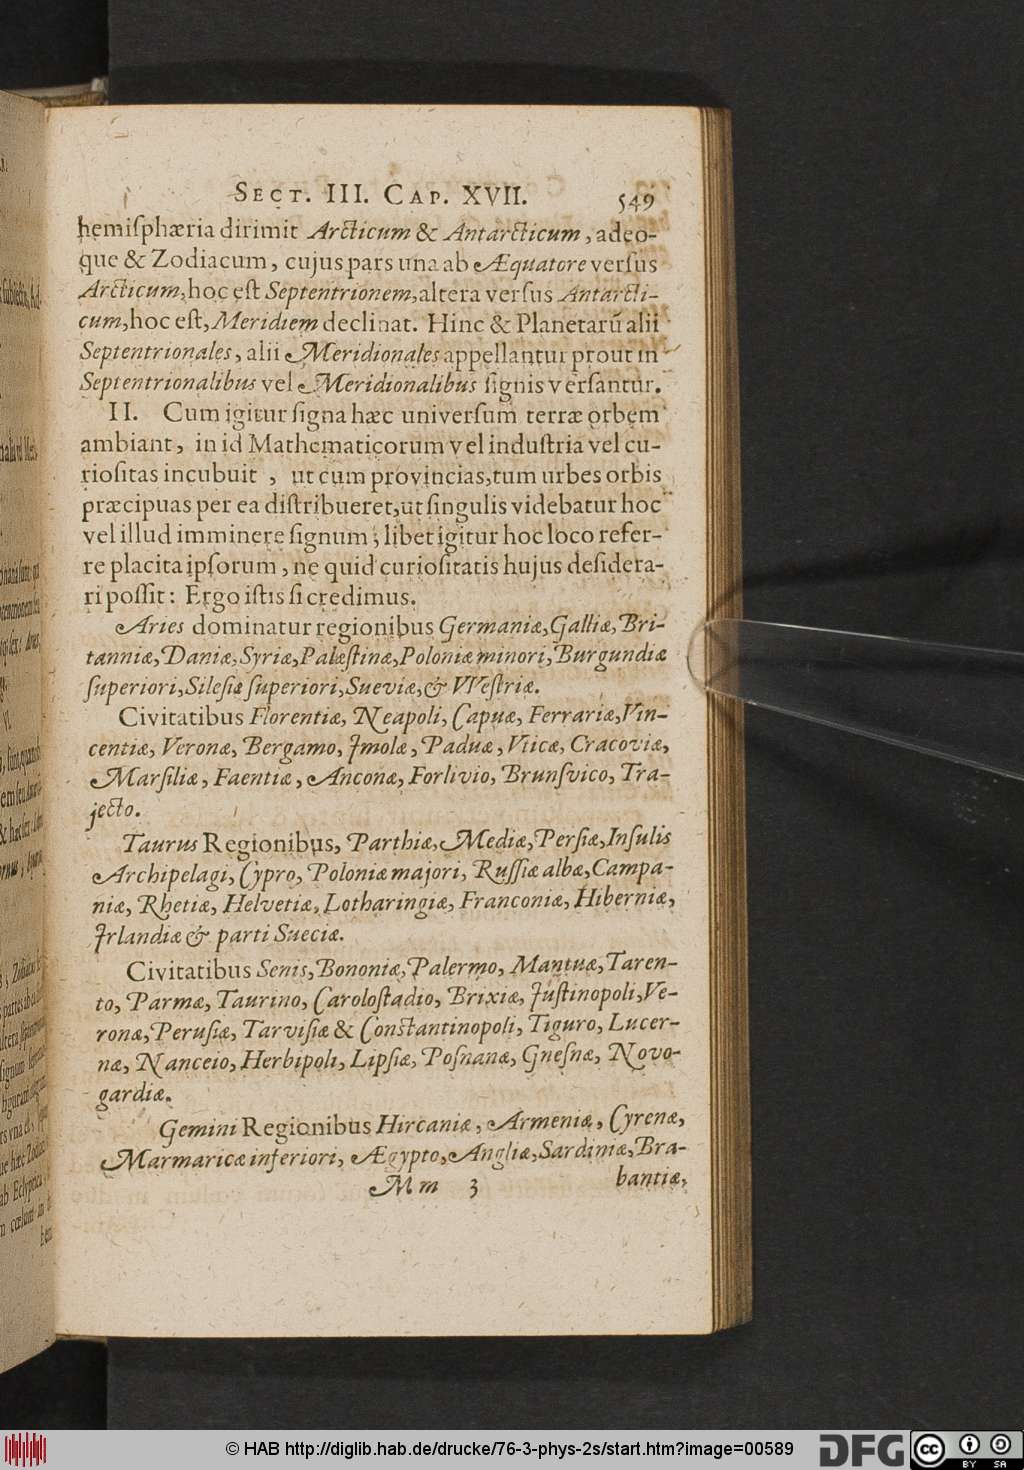 SECT. III. CAP. XVII. 549
hemiſphæria dirimit Arcticum & Antarcticum, adeo-
que & Zodiacum, cujus pars una ab Æquatore verſus
Arcticum, hoc eſt Septentrionem, altera verſus Antarcti-
cum, hoc eſt, Meridiem declinat. Hinc & Planetarũ alii
Septentrionales, alii Meridionales appellantur prout in
Septentrionalibus vel Meridionalibus ſignis verſantur.
II. Cum igitur ſigna hæc univerſum terræ orbem
ambiant, in id Mathematicorum vel induſtria vel cu-
rioſitas incubuit, ut cum provincias, tum urbes orbis
præcipuas per ea diſtribueret, ut ſingulis videbatur hoc
vel illud imminere ſignum; libet igitur hoc loco refer-
re placita ipſorum, ne quid curioſitatis hujus deſidera-
ri poſſit: Ergo iſtis ſi credimus.
Aries dominatur regionibus Germaniæ, Galliæ, Bri-
tanniæ, Daniæ, Syriæ, Palæſtinæ, Poloniæ minori, Burgundiæ
ſuperiori, Sileſiæ ſuperiori, Sueviæ, & VVeſtriæ.
Civitatibus Florentiæ, Neapoli, Capuæ, Ferrariæ, Vin-
centiæ, Veronæ, Bergamo, Jmolæ, Paduæ, Viicæ, Cracoviæ,
Marſiliæ, Faentiæ, Anconæ, Forlivio, Brunſvico, Tra-
jecto.
Taurus Regionibus, Parthiæ, Mediæ, Perſiæ, Inſulis
Archipelagi, Cypro, Poloniæ majori, Ruſſiæ albæ, Campa-
niæ, Rhetiæ, Helvetiæ, Lotharingiæ, Franconiæ, Hiberniæ,
Jrlandiæ & parti Sueciæ.
Civitatibus Senis, Bononiæ, Palermo, Mantuæ, Taren-
to, Parmæ, Taurino, Caroloſtadio, Brixiæ, Juſtinopoli, Ve-
ronæ, Peruſiæ, Tarviſiæ & Conſtantinopoli, Tiguro, Lucer-
næ, Nanceio, Herbipoli, Lipſiæ, Poſnanæ, Gneſnæ, Novo-
gardiæ.
Gemini Regionibus Hircaniæ, Armeniæ, Cyrenæ,
Marmaricæ inferiori, Ægypto, Angliæ, Sardiniæ, Bra-
M m 3 bantiæ,
© HAB http://diglib.hab.de/drucke/76-3-phys-2s/start.htm?image=00589
DFG cc BY SA